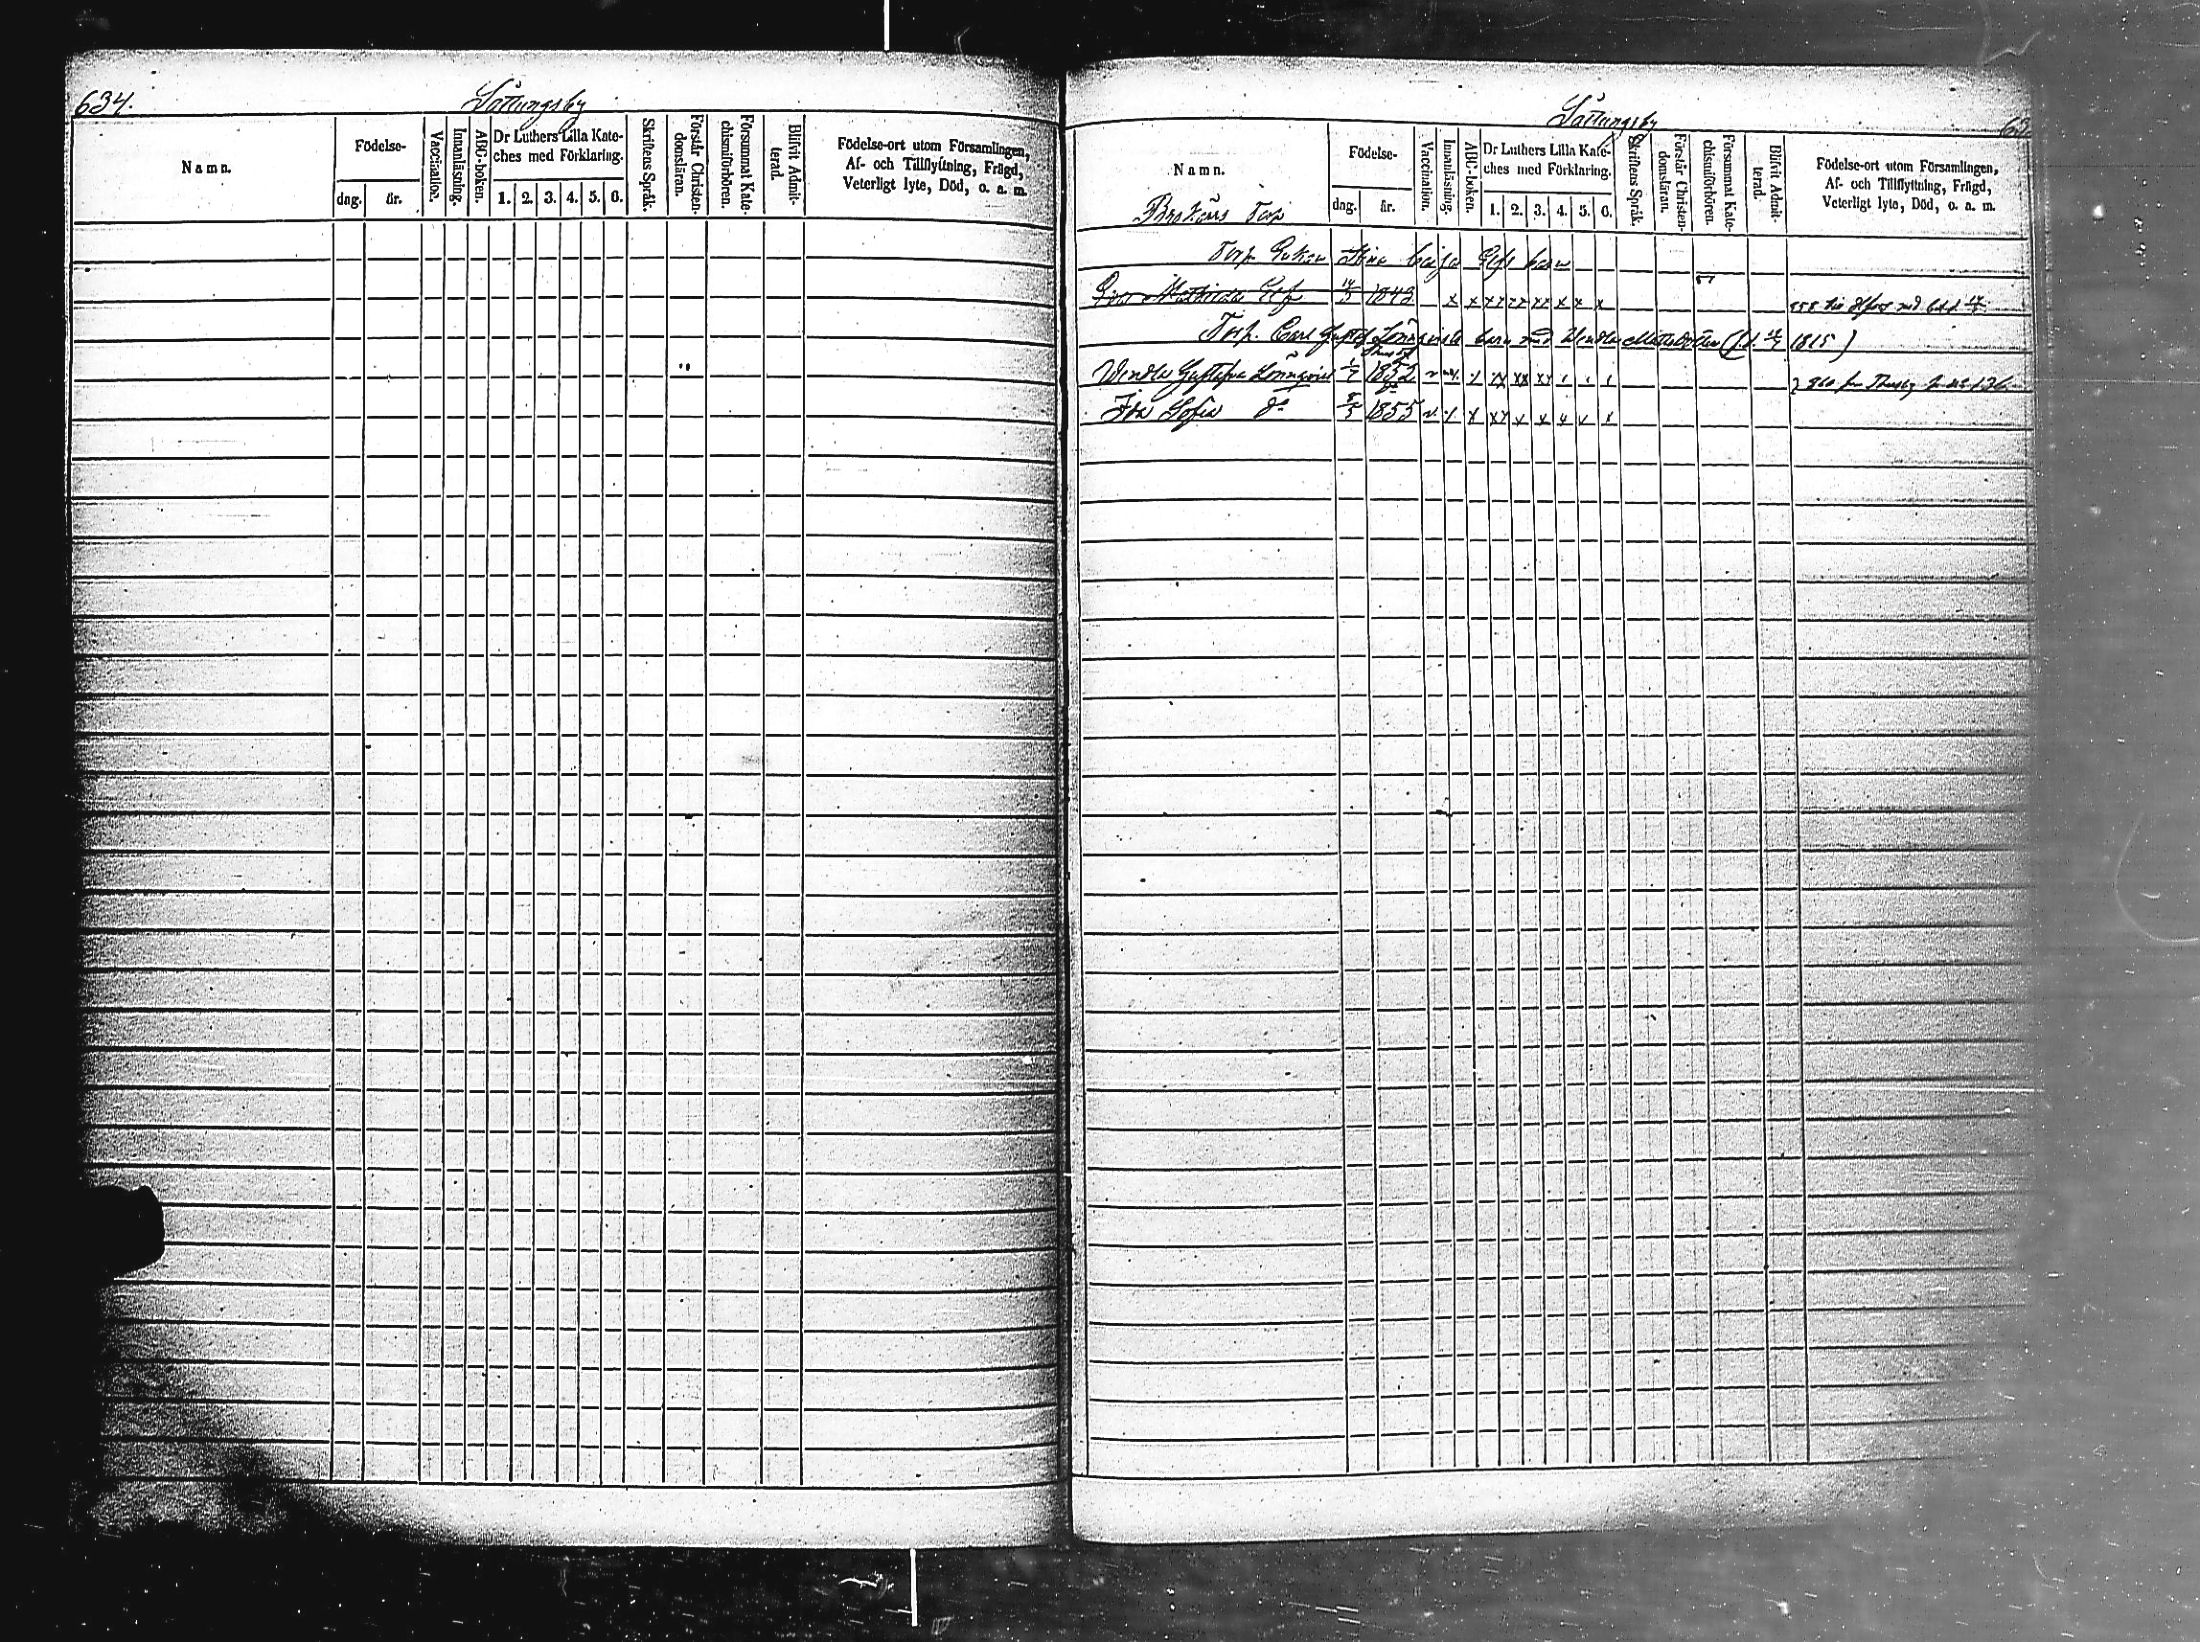 634.
Såttungsby
Namn.
Födelse-
dag.
år.
Vaccination.
Innanläsning.
ABC-boken.
Dr Luthers Lilla Kate-
ches med Förklaring.
1. 2. 3. 4. 5. 6.
Skriftens Språk.
Förstår Christen-
domsläran.
Försummat Kate-
chismiförhören.
Blifvit Admit-
terad.
Födelse-ort utom Församlingen,
Af- och Tillflyttning, Frägd,
Veterligt lyte, Död, o. a. m.
Såttungsby
63
Namn.
Födelse-
dag.
år.
Vaccination.
Innanläsning.
ABC-boken.
Dr Luthers Lilla Kate-
ches med Förklaring.
1. 2. 3. 4. 5. 6.
Skriftens Språk.
Förstår Christen-
domsläran.
Försummat Kate-
chismiförhören.
Blifvit Admit-
terad.
Födelse-ort utom Församlingen,
Af- och Tillflyttning, Frägd,
Veterligt lyte, Död, o. a. m.
Torp
Torp. Enkan Stina Caisa Elfs barn
Mathilda Elf 1843 x x xx xx xx x x x
Torp. Carl Gustaf Lönnqvists barn med Wendla 1815)
Wendla Gustafva Lönnqvist 1/7 1852
Ida Sofia do 1855 v x x xx x x x x x